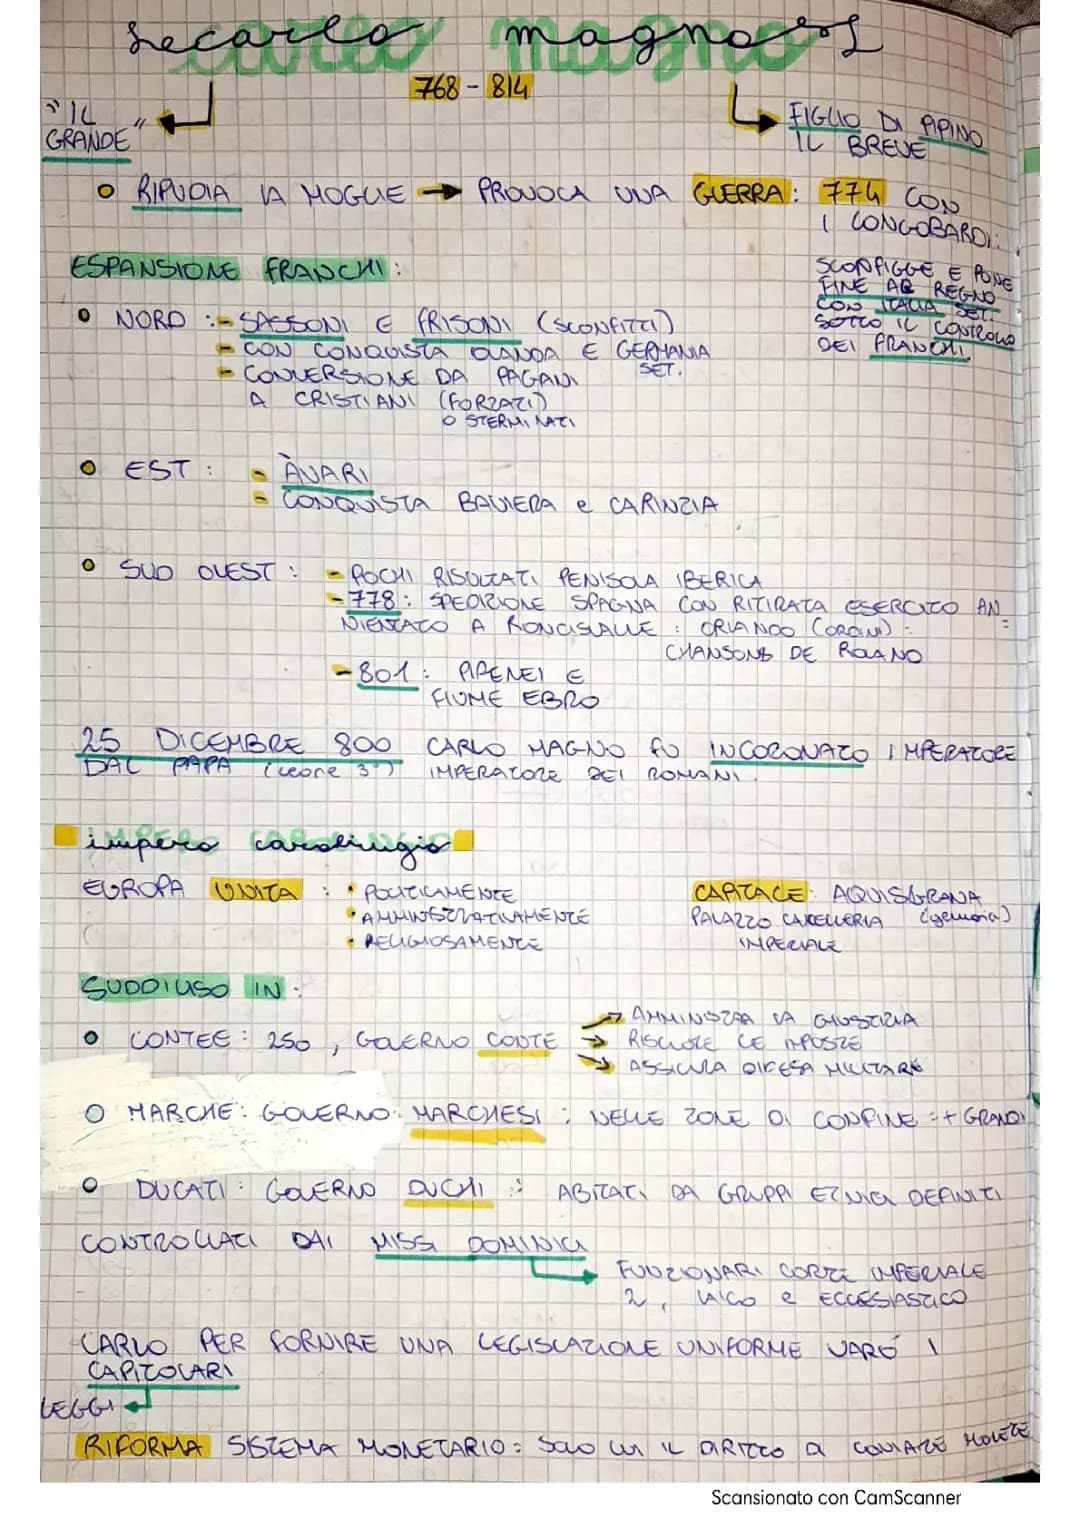 carlo magno
768 - 814
"IL
GRANDE"
FIGLIO DI PIPINO
IL BREVE
RIPUDIA LA MOGLIE → PROVOCA UNA GUERRA: 774 CON
I LONGOBARDI:
SCONFIGGE E PONE
FINE AL REGNO
CON ITALIA SET.
SOTTO IL CONTROLLO
DEI FRANCHI
ESPANSIONE FRANCHI:
NORD :- SASSONI E FRISONI (SCONFITTI)
- CON CONQUISTA OLANDA E GERMANIA
SET.
- CONVERSIONE DA PAGANI
A CRISTIANI (FORZATI)
O STERMINATI
EST: - ÀVARI
- CONQUISTA BAVIERA e CARINZIA
SUD OVEST: - POCHI RISULTATI PENISOLA IBERICA
- 778: SPEDIZIONE SPAGNA CON RITIRATA ESERCITO AN=
NIENTATO A RONCISVALLE: ORLANDO (ORDINI):
CHANSONS DE ROLAND
- 801: PIRENEI E
FIUME EBRO
25 DICEMBRE 800 CARLO MAGNO FU INCORONATO IMPERATORE
DAL PAPA (leone 3°) IMPERATORE DEI ROMANI.
impero carolingio
EUROPA UNITA : • POLITICAMENTE
• AMMINISTRATIVAMENTE
• RELIGIOSAMENTE
CAPITALE: AQUISGRANA
PALAZZO CANCELLERIA (germania)
IMPERIALE
SUDDIVISO IN:
CONTEE: 250, GOVERNO CONTE → AMMINISTRA LA GIUSTIZIA
→ RISCUOTE LE IMPOSTE
→ ASSICURA DIFESA MILITARE
MARCHE: GOVERNO MARCHESI: NELLE ZONE DI CONFINE :+ GRANDI
DUCATI: GOVERNO DUCHI : ABITATI DA GRUPPI ETNICI DEFINITI
CONTROLLATI DAI MISSI DOMINICI
FUNZIONARI CORTE IMPERIALE
2, LAICO e ECCLESIASTICO
CARLO PER FORNIRE UNA LEGISLAZIONE UNIFORME VARÓ I
CAPITOLARI
LEGGI
RIFORMA SISTEMA MONETARIO: Solo lui IL DIRITTO a CONIARE MONETE
Scansionato con CamScanner